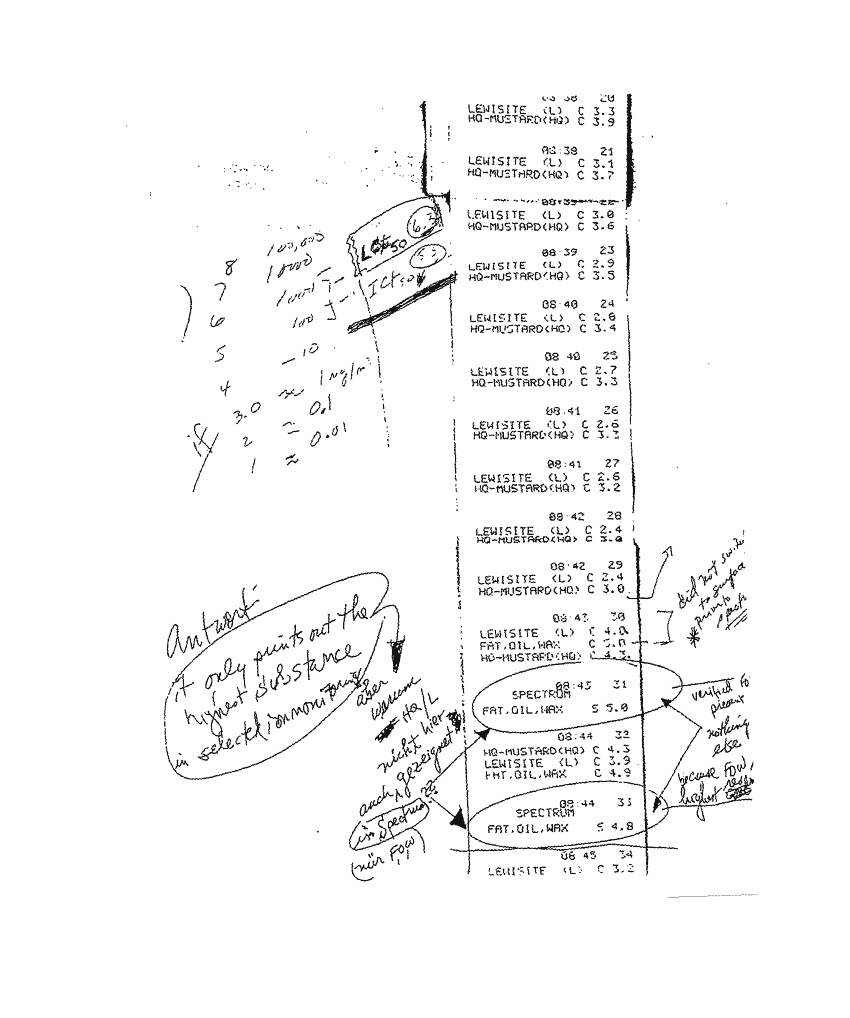 08:38 20
LEWISITE (L) C 3.3
HQ-MUSTARD(HQ) C 3.9
08:38 21
LEWISITE (L) C 3.1
HQ-MUSTARD(HQ) C 3.7
08:39 22
LEWISITE (L) C 3.0
HQ-MUSTARD(HQ) C 3.6
08:39 23
LEWISITE (L) C 2.9
HQ-MUSTARD(HQ) C 3.5
08:40 24
LEWISITE (L) C 2.8
HQ-MUSTARD(HQ) C 3.4
08:40 25
LEWISITE (L) C 2.7
HQ-MUSTARD(HQ) C 3.3
08:41 26
LEWISITE (L) C 2.6
HQ-MUSTARD(HQ) C 3.3
08:41 27
LEWISITE (L) C 2.6
HQ-MUSTARD(HQ) C 3.2
08:42 28
LEWISITE (L) C 2.4
HQ-MUSTARD(HQ) C 3.0
08:42 29
LEWISITE (L) C 2.4
HQ-MUSTARD(HQ) C 3.0
08:43 30
LEWISITE (L) C 4.0
FAT,OIL,WAX C 5.0
HQ-MUSTARD(HQ) C 4.3
08:43 31
SPECTRUM
FAT,OIL,WAX S 5.0
08:44 32
HQ-MUSTARD(HQ) C 4.3
LEWISITE (L) C 3.9
FAT,OIL,WAX C 4.9
08:44 33
SPECTRUM
FAT,OIL,WAX S 4.8
08:45 34
LEWISITE (L) C 3.2
LCt50 6.3
ICt50 5.3
8 100,000
7 10000
6 1000
5 100
4 - 10
if 3.0 ≈ 1 mg/m³
2 ≈ 0.1
1 ≈ 0.01
Antwort:
it only prints out the
highest substance
in selected ion monitoring
aber
warum
HQ/L
nicht hier
auch gezeignet
in Spectrum??
(nür FOW)!!
did not switch
to surface
prior to
verified to
present
nothing
else
because FOW,
highest